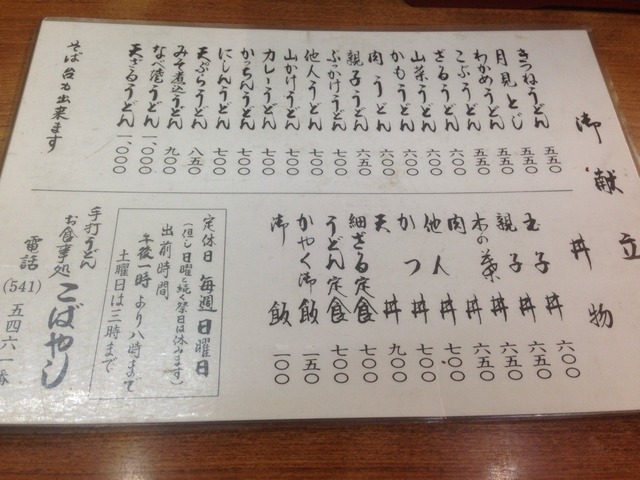 御献立
きつねうどん 五五〇
月見とじ 五五〇
わかめうどん 五五〇
こぶうどん 五五〇
ざるうどん 六〇〇
山菜うどん 六〇〇
かもうどん 六〇〇
肉うどん
親子うどん 六五〇
ぶっかけうどん 七〇〇
他人うどん 七〇〇
山かけうどん 七〇〇
カレーうどん 七〇〇
かっちんうどん 七〇〇
にしんうどん 七〇〇
天ぷらうどん 八五〇
みそ煮込うどん 九〇〇
なべ焼うどん 一、〇〇〇
天ざるうどん 一、〇〇〇
そば台も出来ます
丼物
玉子丼 六〇〇
親子丼 六五〇
木の葉丼 六五〇
肉丼 六五〇
他人丼 七〇〇
かつ丼 七〇〇
天丼 九〇〇
細ざる定食 七〇〇
うどん定食 七〇〇
かやく御飯 一五〇
御飯 一〇〇
定休日 毎週日曜日
(但し日曜と続く祭日は休みます)
出前時間
午後一時より八時まで
土曜日は三時まで
手打うどん
お食事処 こばやし
電話(541)五四六一番